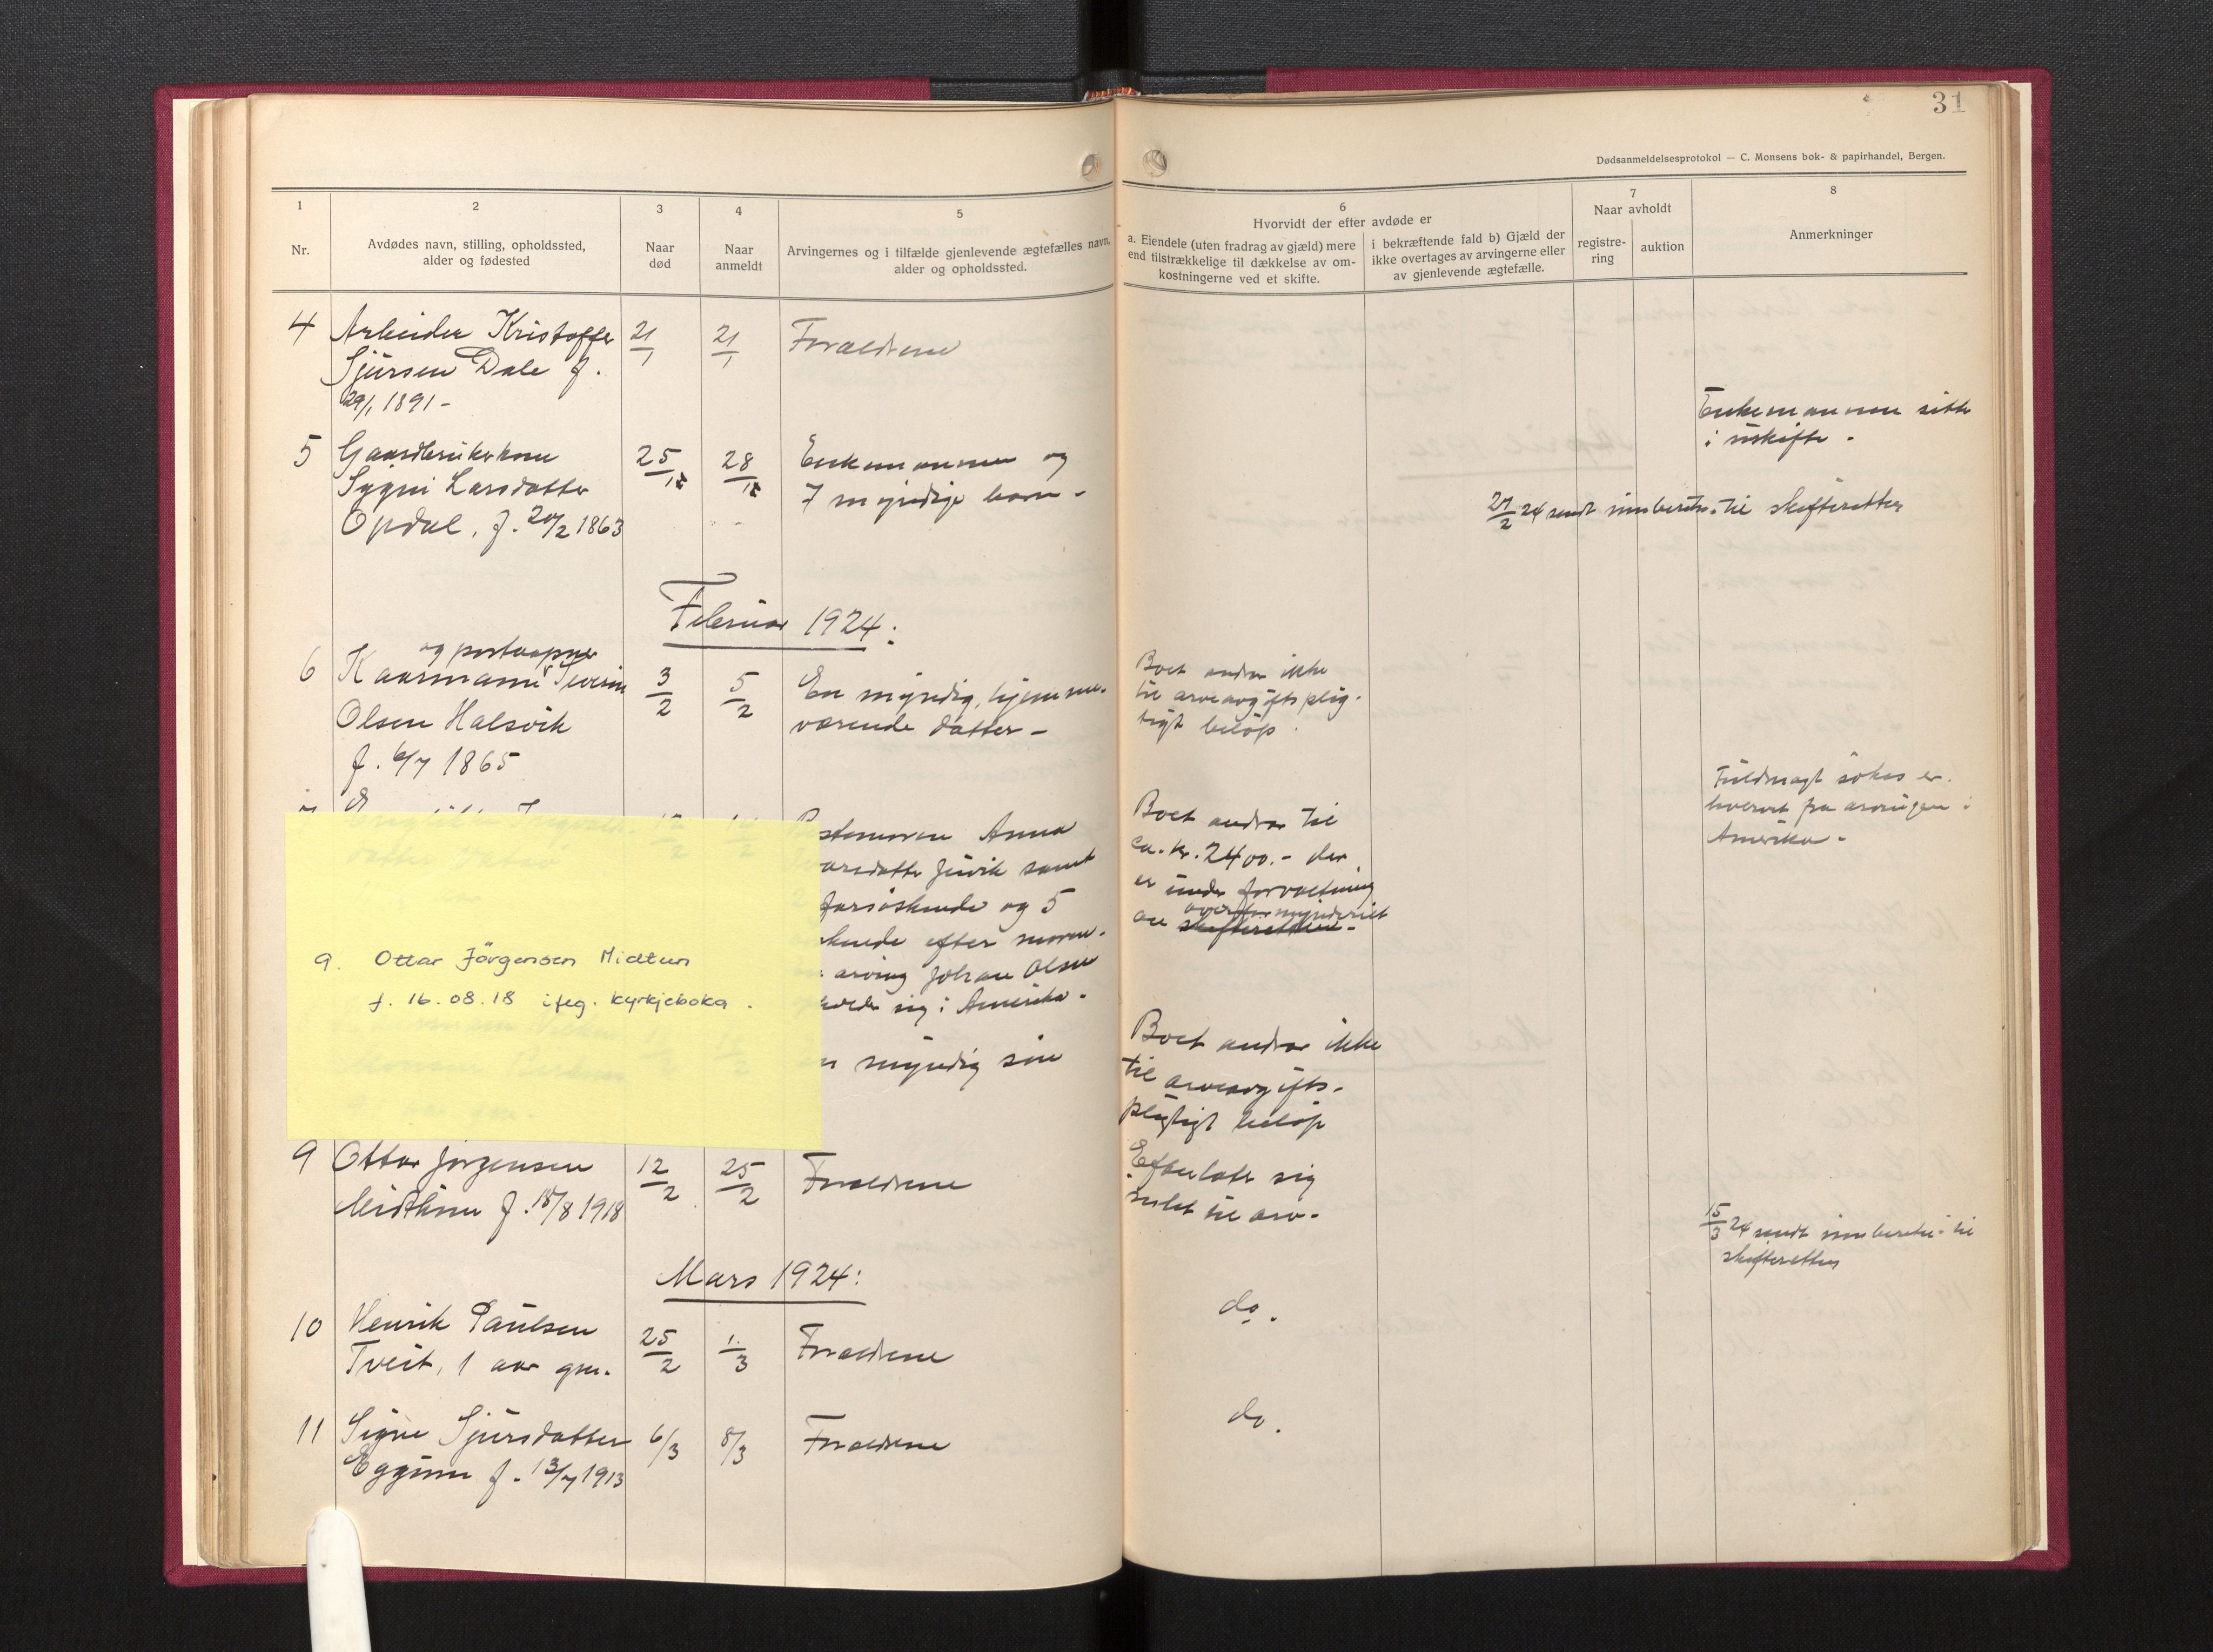 31
Dødsanmeldelsesprotokol — C. Monsens bok- & papirhandel, Bergen.
1
Nr.
2
Avdødes navn, stilling, opholdssted,
alder og fødested
3
Naar
død
4
Naar
anmeldt
5
Arvingernes og i tilfælde gjenlevende ægtefælles navn,
alder og opholdssted.
6
Hvorvidt der efter avdøde er
a. Eiendele (uten fradrag av gjæld) mere
end tilstrækkelige til dækkelse av om-
kostningerne ved et skifte.
i bekræftende fald b) Gjæld der
ikke overtages av arvingerne eller
av gjenlevende ægtefælle.
7
Naar avholdt
registre-
ring
auktion
8
Anmerkninger
4 Arbeider Kristoffer
Sjursen Dale f.
29/1 1891 -
21/1
21/1
Forældrene
5 Gaardbrukerkone
Sygni Larsdatter
Opdal, f. 20/2 1863
25/12
28/12
Enkemannen og
7 myndige barn -
Enkemannen sitter
i uskifte -
27/2 24 sendt innberetn. til skifteretten
Februar 1924:
6 Kaarmann og postaapner
Olsen Halsvik
f. 6/7 1865
3/2
5/2
En myndig, hjemme-
værende datter -
Boet andrar ikke
til arveavgiftsplig-
tigt beløp.
Anna
samt
og 5
efter moren.
arving Johan Olsen
sig i Amerika.
Boet andrar til
ca. kr. 2400.- der
er under forvaltning
av overformynderiet
skifteretten -
Fuldmagt søkes er-
hvervet fra arvingen i
Amerika -
9. Ottar Jörgensen Midtun
f. 16.08.18 ifeg. kyrkjeboka.
myndig søn
Boet andrar ikke
til arveavgifts-
pligtigt beløp
9 Ottar Jørgensen
Midthun f. 18/8 1918
12/2
25/2
Forældrene
Efterlater sig
intet til arv -
15/3 24 sendt innberetn. til
skifteretten
Mars 1924:
10 Henrik Paulsen
Tveit, 1 aar gm.
25/2
1/3
Forældrene
do.
11 Signe Sjursdatter
Eggum f. 13/7 1913
6/3
8/3
Forældrene
do.